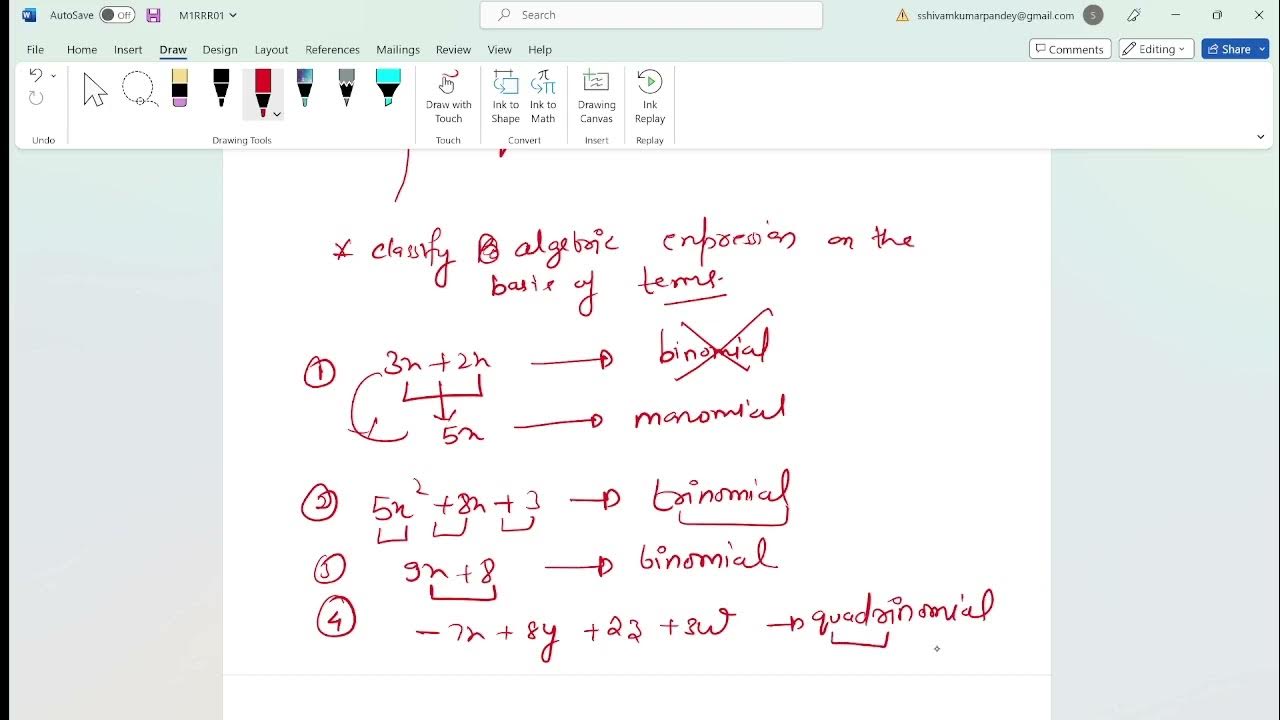 AutoSave Off M1RRR01 Search sshivamkumarpandey@gmail.com S
File Home Insert Draw Design Layout References Mailings Review View Help Comments Editing Share
Draw with Touch Ink to Shape Ink to Math Drawing Canvas Ink Replay
Undo Drawing Tools Touch Convert Insert Replay
* classify algebric expression on the
basis of terms.
① 3x + 2x → binomial
5x → monomial
② 5x² + 8x + 3 → trinomial
③ 9x + 8 → binomial
④ - 7x + 8y + 2z + 3w → quadrinomial